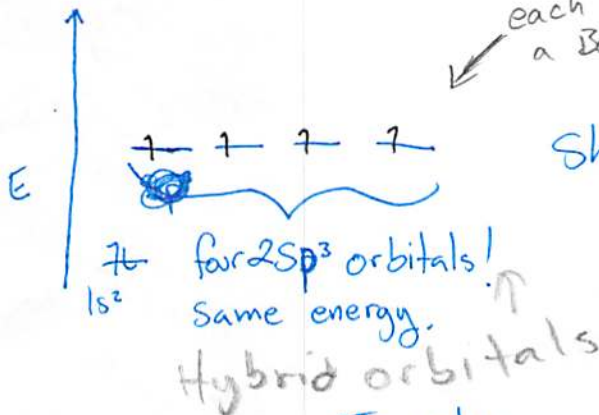 each
a
E
four 2sp³ orbitals!
1s²
same energy.
Hybrid orbitals